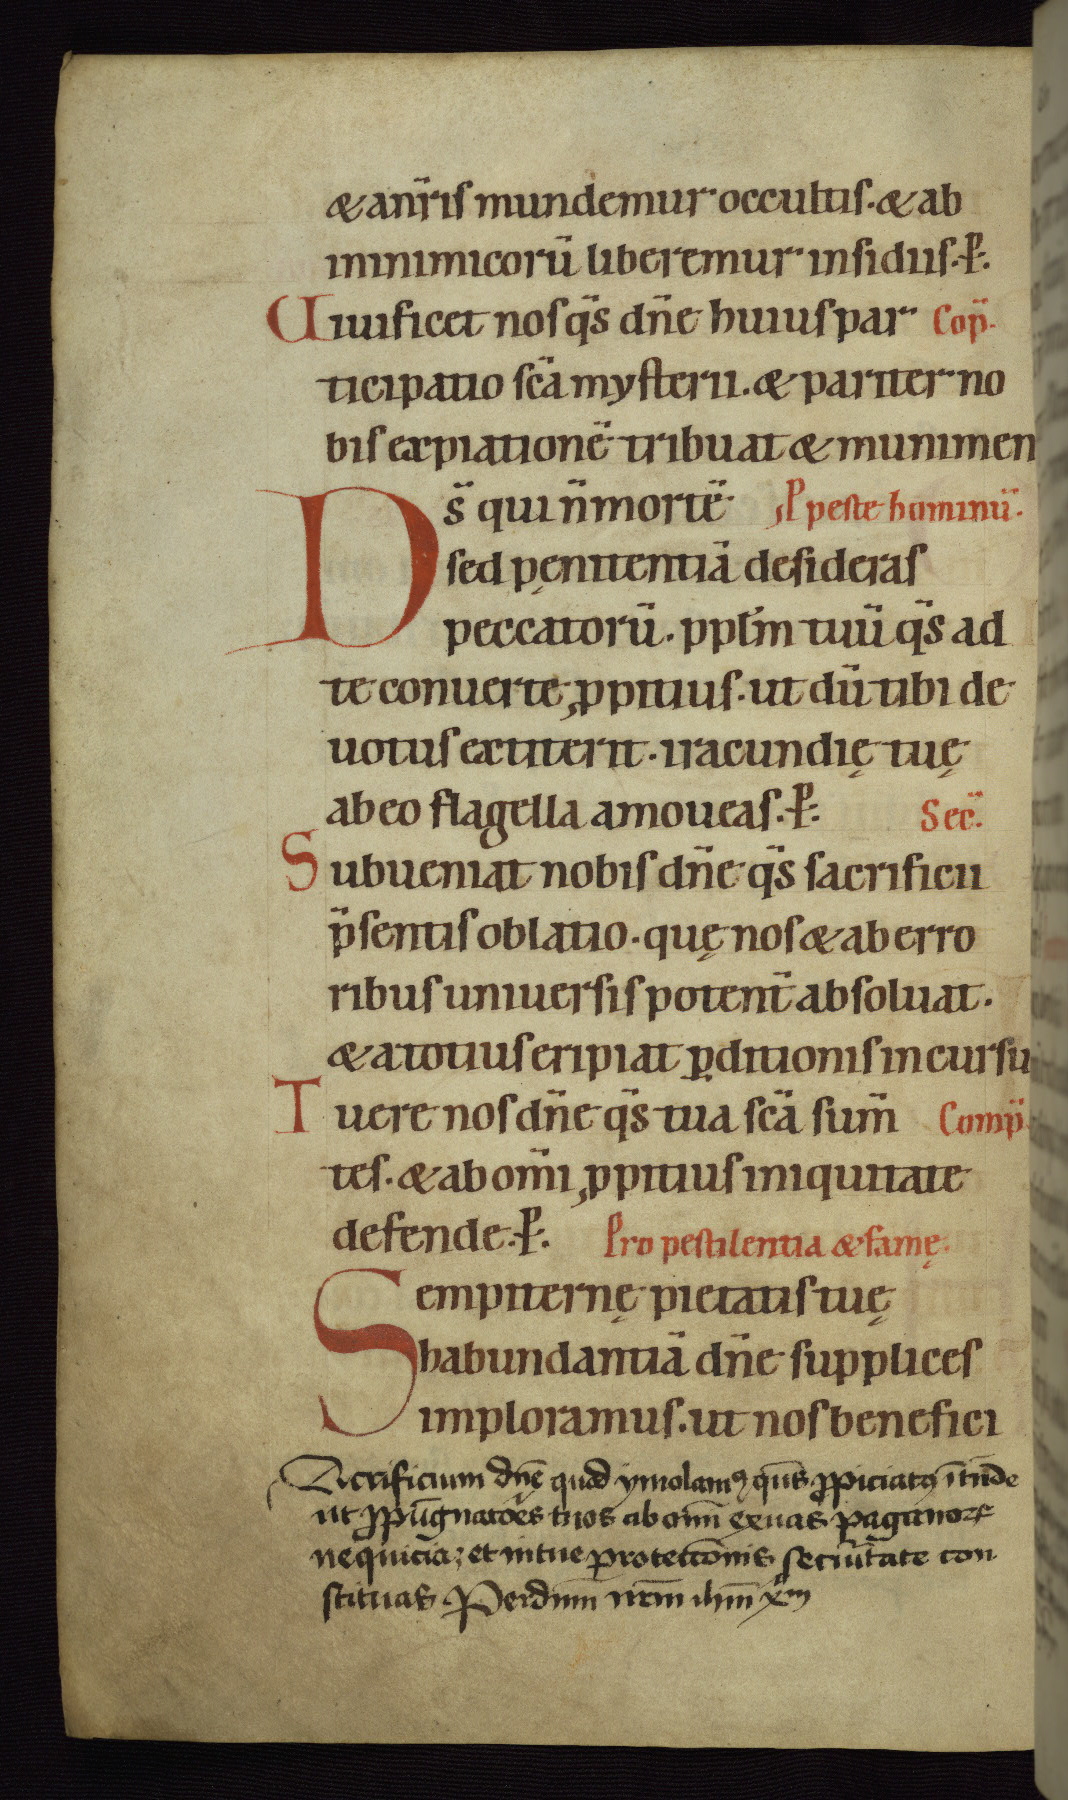 & a nr̄is mundemur occultis. & ab
inimicorū liberemur insidiis. P̄.
Uiuificet nos q̄s dn̄e huius par Cop̄.
ticipatio sc̄a mysterii. & pariter no
bis expiationē tribuat & munimen
Ds̄ qui n̄ mortē P peste hominū.
sed pęnitentiā desideras
peccatorū. ppl̄m tuū q̄s ad
te conuerte ꝓpitius. ut dū tibi de
uotus extiterit. iracundię tuę
ab eo flagella amoueas. P̄. Sec̄.
Subueniat nobis dn̄e q̄s sacrificii
p̄sentis oblatio. quę nos & ab erro
ribus uniuersis potent̄ absoluat.
& a totius eripiat ꝑditionis incursu
Tuere nos dn̄e q̄s tua sc̄a sum̄ Comp̄
tes. & ab om̄i ꝓpitius iniquitate
defende. P̄. Pro pestilentia & famę.
Sempiternę pietatis tuę
habundantiā dn̄e supplices
imploramus. ut nos benefici
Sacrificium dn̄e quod ymolamꝰ qūs ꝓpiciatꝰ ītūde
ut ꝓpūgnatōes tuos ab om̄i exuas paganoꝝ
nequicia; et in tue protectōnis secūritate con
stituas Per dn̄m nr̄m ihm̄ xp̄m